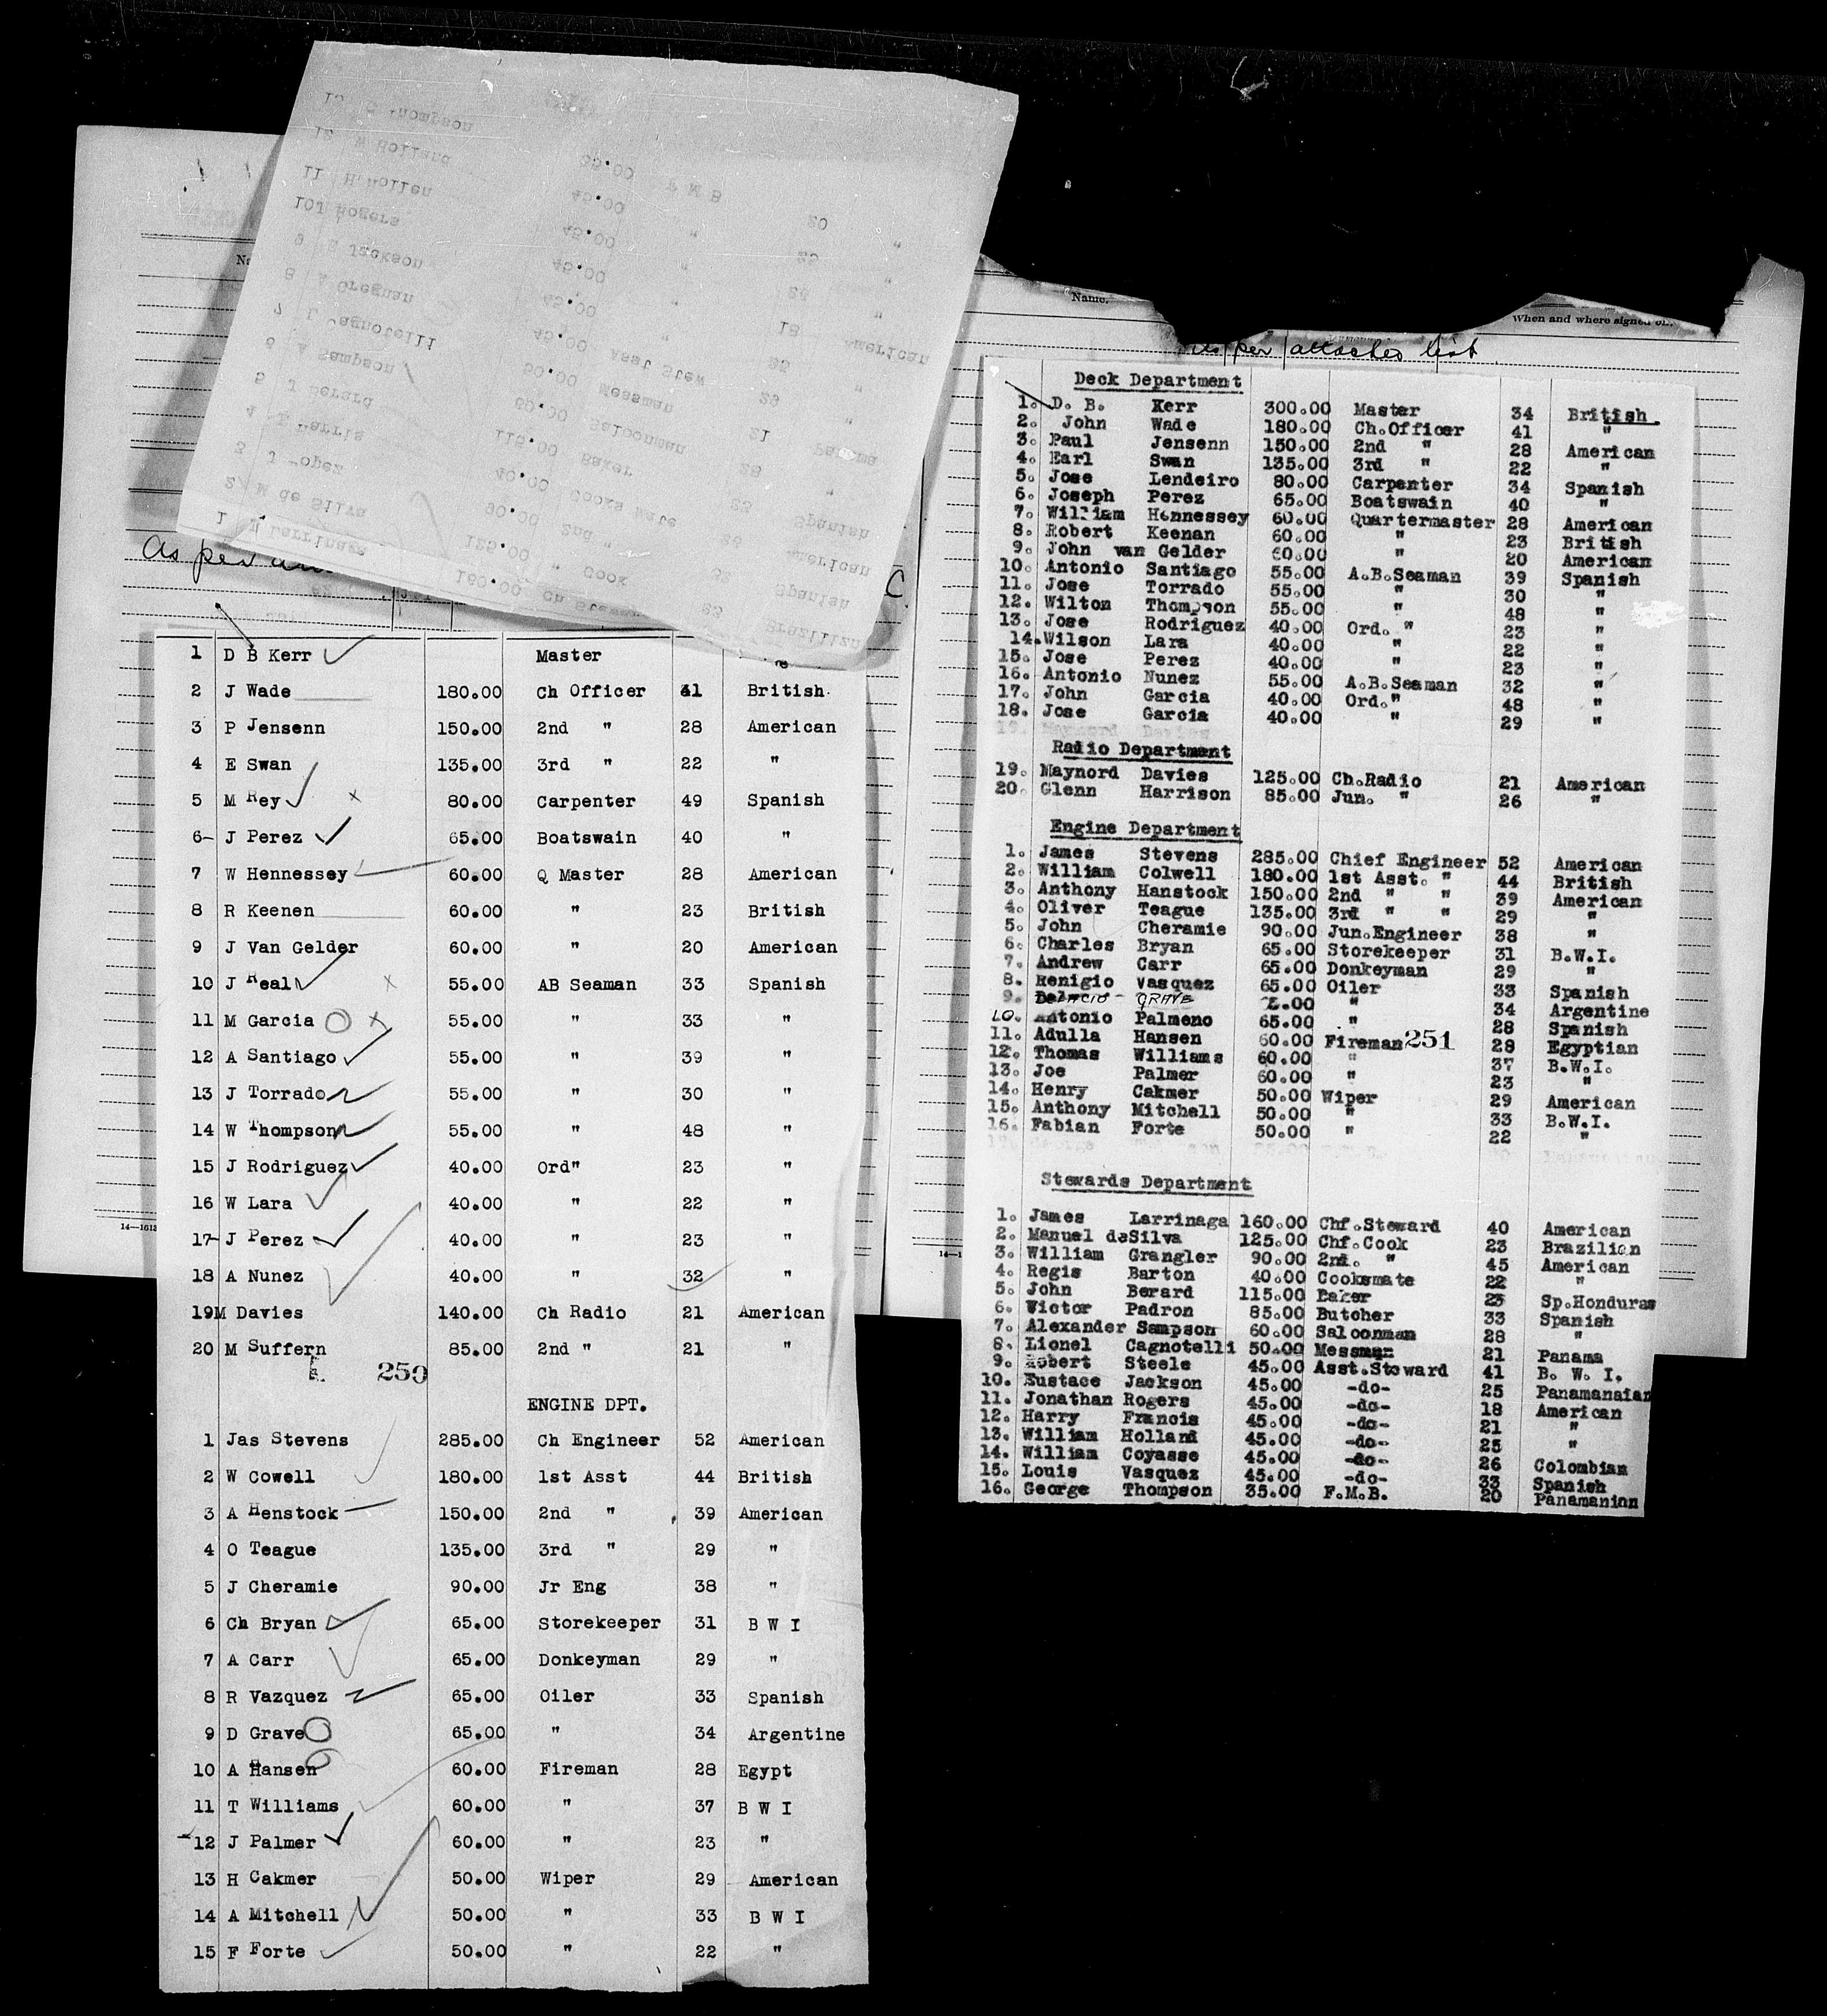 As per
1 D B Kerr Master
2 J Wade 180.00 Ch Officer 41 British
3 P Jensenn 150.00 2nd " 28 American
4 E Swan 135.00 3rd " 22 "
5 M Rey x 80.00 Carpenter 49 Spanish
6- J Perez 65.00 Boatswain 40 "
7 W Hennessey 60.00 Q Master 28 American
8 R Keenen 60.00 " 23 British
9 J Van Gelder 60.00 " 20 American
10 J Real x 55.00 AB Seaman 33 Spanish
11 M Garcia O x 55.00 " 33 "
12 A Santiago 55.00 " 39 "
13 J Torrado 55.00 " 30 "
14 W Thompson 55.00 " 48 "
15 J Rodriguez 40.00 Ord" 23 "
16 W Lara 40.00 " 22 "
17- J Perez 40.00 " 23 "
18 A Nunez 40.00 " 32 "
19 M Davies 140.00 Ch Radio 21 American
20 M Suffern 85.00 2nd " 21 "
250
ENGINE DPT.
1 Jas Stevens 285.00 Ch Engineer 52 American
2 W Cowell 180.00 1st Asst 44 British
3 A Henstock 150.00 2nd " 39 American
4 O Teague 135.00 3rd " 29 "
5 J Cheramie 90.00 Jr Eng 38 "
6 Ch Bryan 65.00 Storekeeper 31 B W I
7 A Carr 65.00 Donkeyman 29 "
8 R Vazquez 65.00 Oiler 33 Spanish
9 D Grave O 65.00 " 34 Argentine
10 A Hansen O 60.00 Fireman 28 Egypt
11 T Williams 60.00 " 37 B W I
12 J Palmer 60.00 " 23 "
13 H Cakmer 50.00 Wiper 29 American
14 A Mitchell 50.00 " 33 B W I
15 F Forte 50.00 " 22 "
1 Larrinaga 160.00 Ch Steward Brazilian
2 M de Silva 125.00 " Cook 23 Spanish
3 J Lopez 90.00 2nd " American
4 Harris 40.00 Cooks Mate Spanish
5 J Berard 115.00 Baker
6 A Sampson 60.00 Saloonman 28 Panama
7 L Cagnotelli 50.00 Messman 21 "
8 A Gregnan 45.00 Asst Stew "
9 E Jackson 45.00 " 25 American
10 J Rogers 45.00 " 18 "
11 H Mollen 45.00 " "
12 W Holland 45.00 " 25 "
13 Thompson 35.00 F M B 20
Name.
When and where signed on.
As per attached list
Deck Department
1. D. B. Kerr 300.00 Master 34 British.
2. John Wade 180.00 Ch.Officer 41 "
3. Paul Jensenn 150.00 2nd " 28 American
4. Earl Swan 135.00 3rd " 22 "
5. Jose Lendeiro 80.00 Carpenter 34 Spanish
6. Joseph Perez 65.00 Boatswain 40 "
7. William Hennessey 60.00 Quartermaster 28 American
8. Robert Keenan 60.00 " 23 British
9. John van Gelder 60.00 " 20 American
10. Antonio Santiago 55.00 A.B.Seaman 39 Spanish
11. Jose Torrado 55.00 " 30 "
12. Wilton Thompson 55.00 " 48 "
13. Jose Rodriguez 40.00 Ord. " 23 "
14. Wilson Lara 40.00 " 22 "
15. Jose Perez 40.00 " 23 "
16. Antonio Nunez 55.00 A.B.Seaman 32 "
17. John Garcia 40.00 Ord." 48 "
18. Jose Garcia 40.00 " 29 "
Radio Department
19. Maynord Davies 125.00 Ch.Radio 21 American
20. Glenn Harrison 85.00 Jun. " 26 "
Engine Department
1. James Stevens 285.00 Chief Engineer 52 American
2. William Colwell 180.00 1st Asst. " 44 British
3. Anthony Hanstock 150.00 2nd " " 39 American
4. Oliver Teague 135.00 3rd " " 29 "
5. John Cheramie 90.00 Jun.Engineer 38 "
6. Charles Bryan 65.00 Storekeeper 31 B.W.I.
7. Andrew Carr 65.00 Donkeyman 29 "
8. Renigio Vasquez 65.00 Oiler 33 Spanish
9. GRAVE " 34 Argentine
10. Antonio Palmeno 65.00 " 28 Spanish
11. Adulla Hansen 60.00 Fireman 251 28 Egyptian
12. Thomas Williams 60.00 " 37 B.W.I.
13. Joe Palmer 60.00 " 23 "
14. Henry Cakmer 50.00 Wiper 29 American
15. Anthony Mitchell 50.00 " 33 B.W.I.
16. Fabian Forte 50.00 " 22 "
Stewards Department
1. James Larrinaga 160.00 Chf.Steward 40 American
2. Manuel deSilva 125.00 Chf.Cook 23 Brazilian
3. William Grangler 90.00 2nd. " 45 American
4. Regis Barton 40.00 Cooksmate 22 "
5. John Berard 115.00 Baker 25 Sp.Honduras
6. Victor Padron 85.00 Butcher 33 Spanish
7. Alexander Sampson 60.00 Saloonman 28 "
8. Lionel Cagnotelli 50.00 Messman 21 Panama
9. Robert Steele 45.00 Asst.Steward 41 B. W. I.
10. Eustace Jackson 45.00 -do- 25 Panamanaian
11. Jonathan Rogers 45.00 -do- 18 American
12. Harry Francis 45.00 -do- 21 "
13. William Holland 45.00 -do- 25 "
14. William Coyasse 45.00 -do- 26 Colombian
15. Louis Vasquez 45.00 -do- 33 Spanish
16. George Thompson 35.00 F.M.B. 20 Panamanian